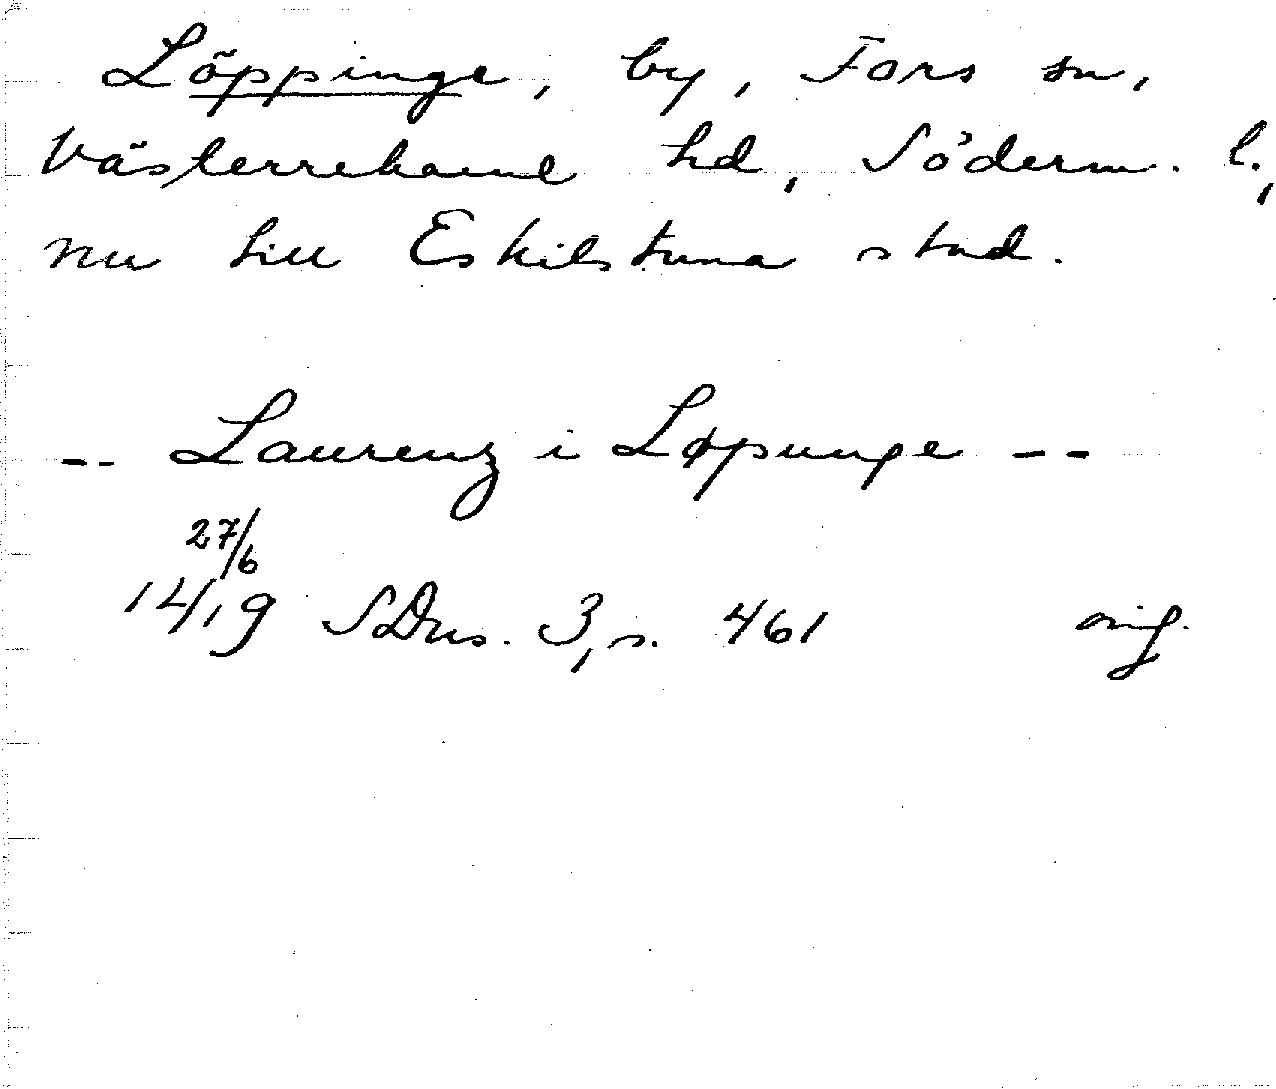 Löppinge, by, Fors sn,
Västerrekarne hd, Söderm. l.,
nu till Eskilstuna stad.
-- Laurenz i Løpunge --
27/6
1419 SDns. 3, s. 461 orig.